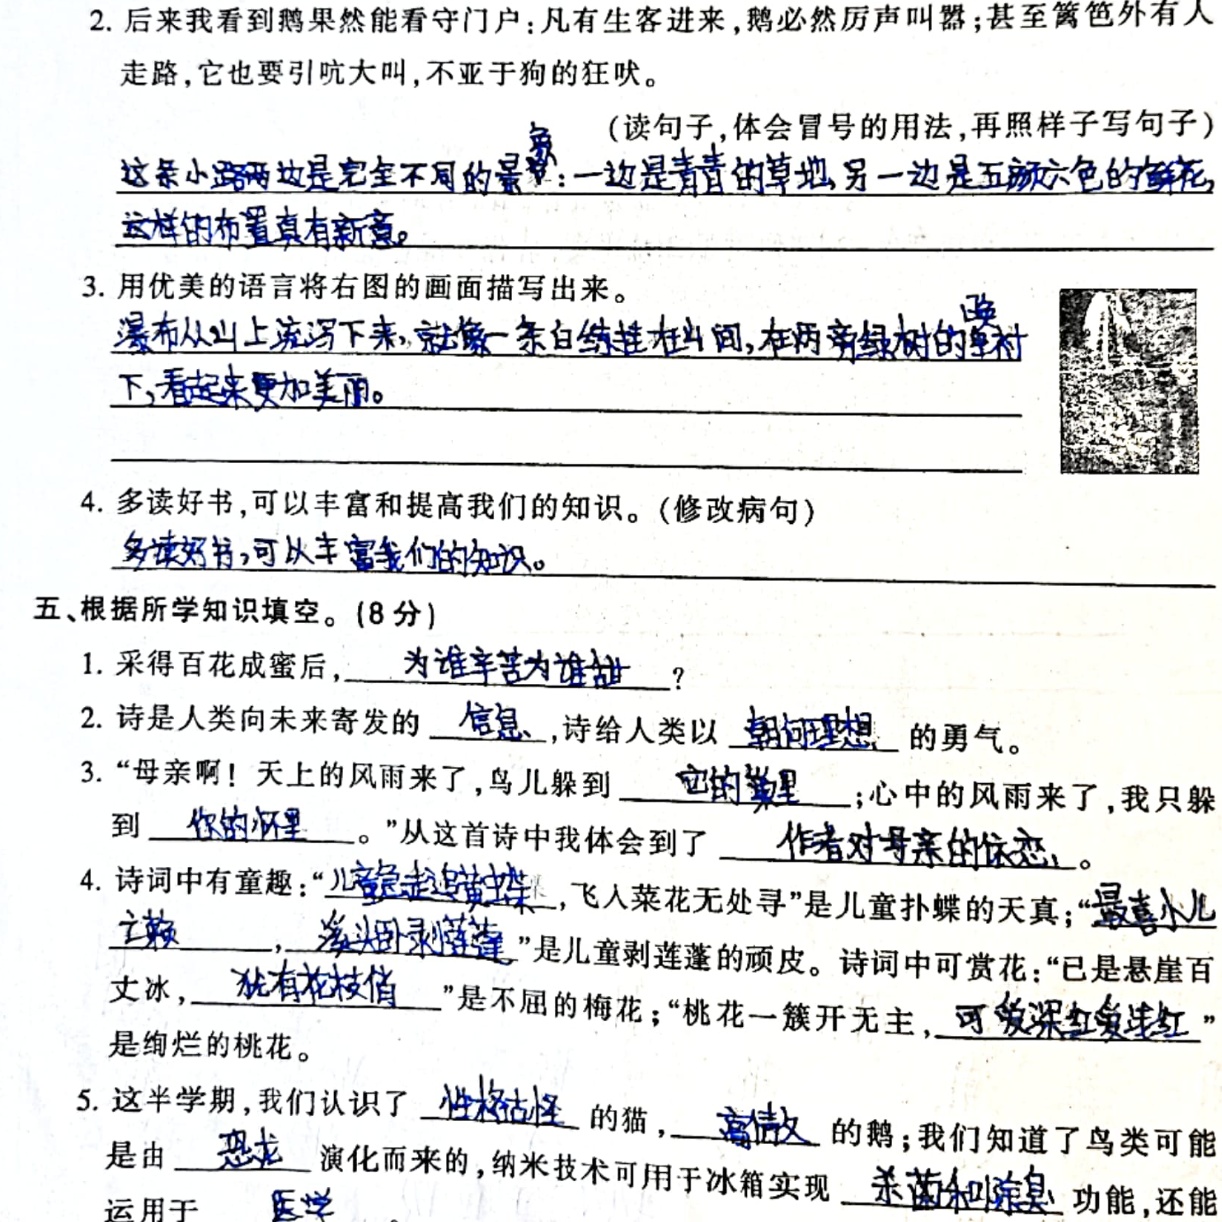 2. 后来我看到鹅果然能看守门户:凡有生客进来,鹅必然厉声叫嚣;甚至篱笆外有人
走路,它也要引吭大叫,不亚于狗的狂吠。
(读句子,体会冒号的用法,再照样子写句子)
这条小路两边是完全不同的景象:一边是青青的草地,另一边是五颜六色的鲜花,
这样的布置真有新意。
3. 用优美的语言将右图的画面描写出来。
瀑布从山上流泻下来,就像一条白练挂在山间,在两旁绿树的映衬
下,看起来更加美丽。
4. 多读好书,可以丰富和提高我们的知识。(修改病句)
多读好书,可以丰富我们的知识。
五、根据所学知识填空。(8分)
1. 采得百花成蜜后,为谁辛苦为谁甜?
2. 诗是人类向未来寄发的 信息 ,诗给人类以 朝向理想 的勇气。
3. “母亲啊!天上的风雨来了,鸟儿躲到 它的巢里 ;心中的风雨来了,我只躲
到 你的怀里 。”从这首诗中我体会到了 作者对母亲的依恋 。
4. 诗词中有童趣:“儿童急走追黄蝶,飞入菜花无处寻”是儿童扑蝶的天真;“最喜小儿
亡赖 , 溪头卧剥莲蓬 ”是儿童剥莲蓬的顽皮。诗词中可赏花:“已是悬崖百
丈冰, 犹有花枝俏 ”是不屈的梅花;“桃花一簇开无主,可爱深红爱浅红”
是绚烂的桃花。
5. 这半学期,我们认识了 性格古怪 的猫, 高傲 的鹅;我们知道了鸟类可能
是由 恐龙 演化而来的,纳米技术可用于冰箱实现 杀菌和除臭 功能,还能
运用于 医学 。